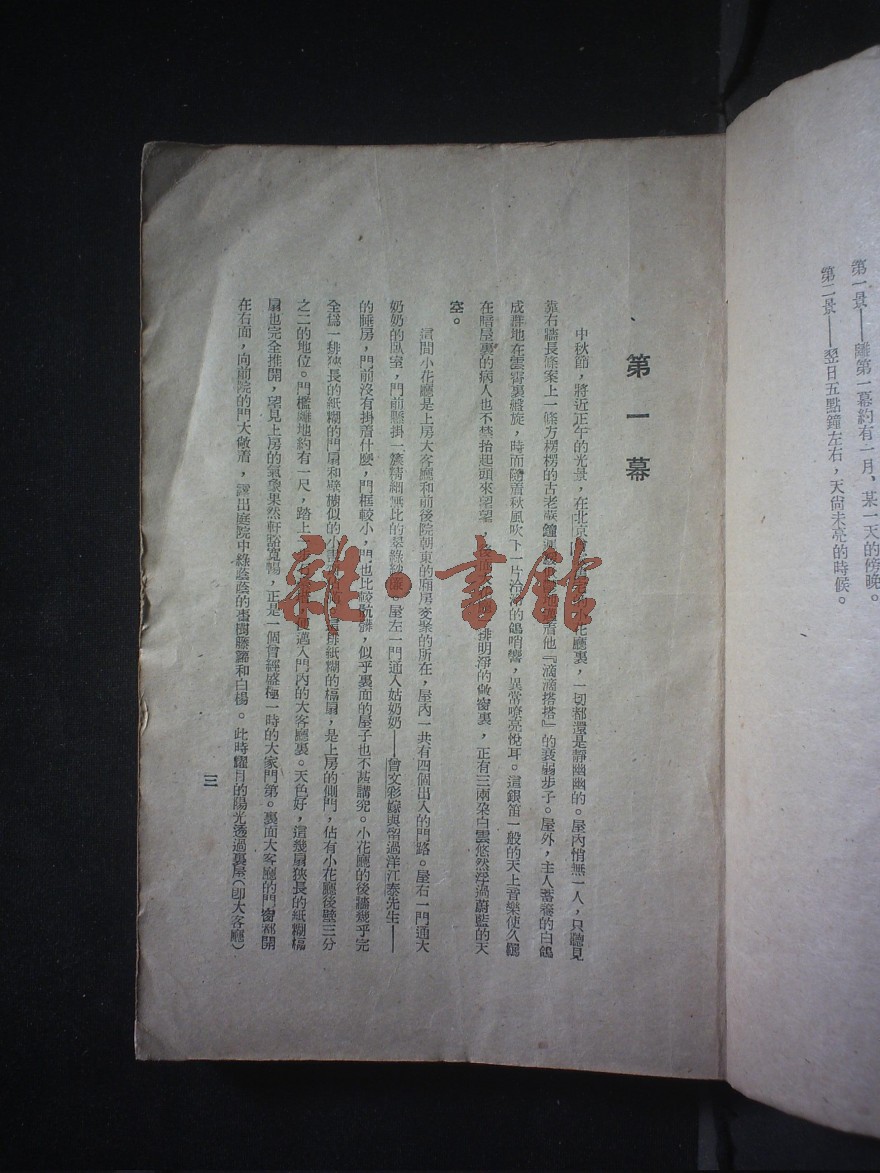 第一景——離第一幕約有一月，某一天的傍晚。
第二景——翌日五點鐘左右，天尙未亮的時候。
第一幕
中秋節，將近正午的光景，在北京的小花廳裏，一切都還是靜幽幽的。屋內悄無一人，只聽見
靠右牆長條案上一條方楞楞的古老蘇鐘遲地着他『滴滴搭搭』的衰弱步子。屋外，主人蓄養的白鴿
成羣地在雲霄裏盤旋，時而隨着秋風吹下一片冷冷的鴿哨響，異常嘹亮悅耳。這銀笛一般的天上音樂使久羈
在暗屋裏的病人也不禁抬起頭來望望，排明淨的敞窗裏，正有三兩朶白雲悠然浮過蔚藍的天
空。
這間小花廳是上房大客廳和前後院朝東的廂房交聚的所在，屋內一共有四個出入的門路。屋右一門通大
奶奶的臥室，門前懸掛一簾精細無比的翠綠紗屋左一門通入姑奶奶——曾文彩嫁與留過洋江泰先生——
的睡房，門前沒有掛着什麼，門框較小，門也比較骯髒，似乎裏面的屋子也不甚講究。小花廳的後牆幾乎完
全爲一排狹長的紙糊的門扇和壁櫥似的小排紙糊的槅扇，是上房的側門，佔有小花廳後壁三分
之二的地位。門檻離地約有一尺，踏上便邁入門內的大客廳裏。天色好，這幾扇狹長的紙糊槅
扇也完全推開，望見上房的氣象果然軒豁寬暢，正是一個曾經盛極一時的大家門第。裏面大客廳的門窗都開
在右面，向前院的門大敞着，露出庭院中綠蔭蔭的棗樹藤蘿和白楊。此時耀目的陽光透過裏屋（卽大客廳）
三
雜·書館